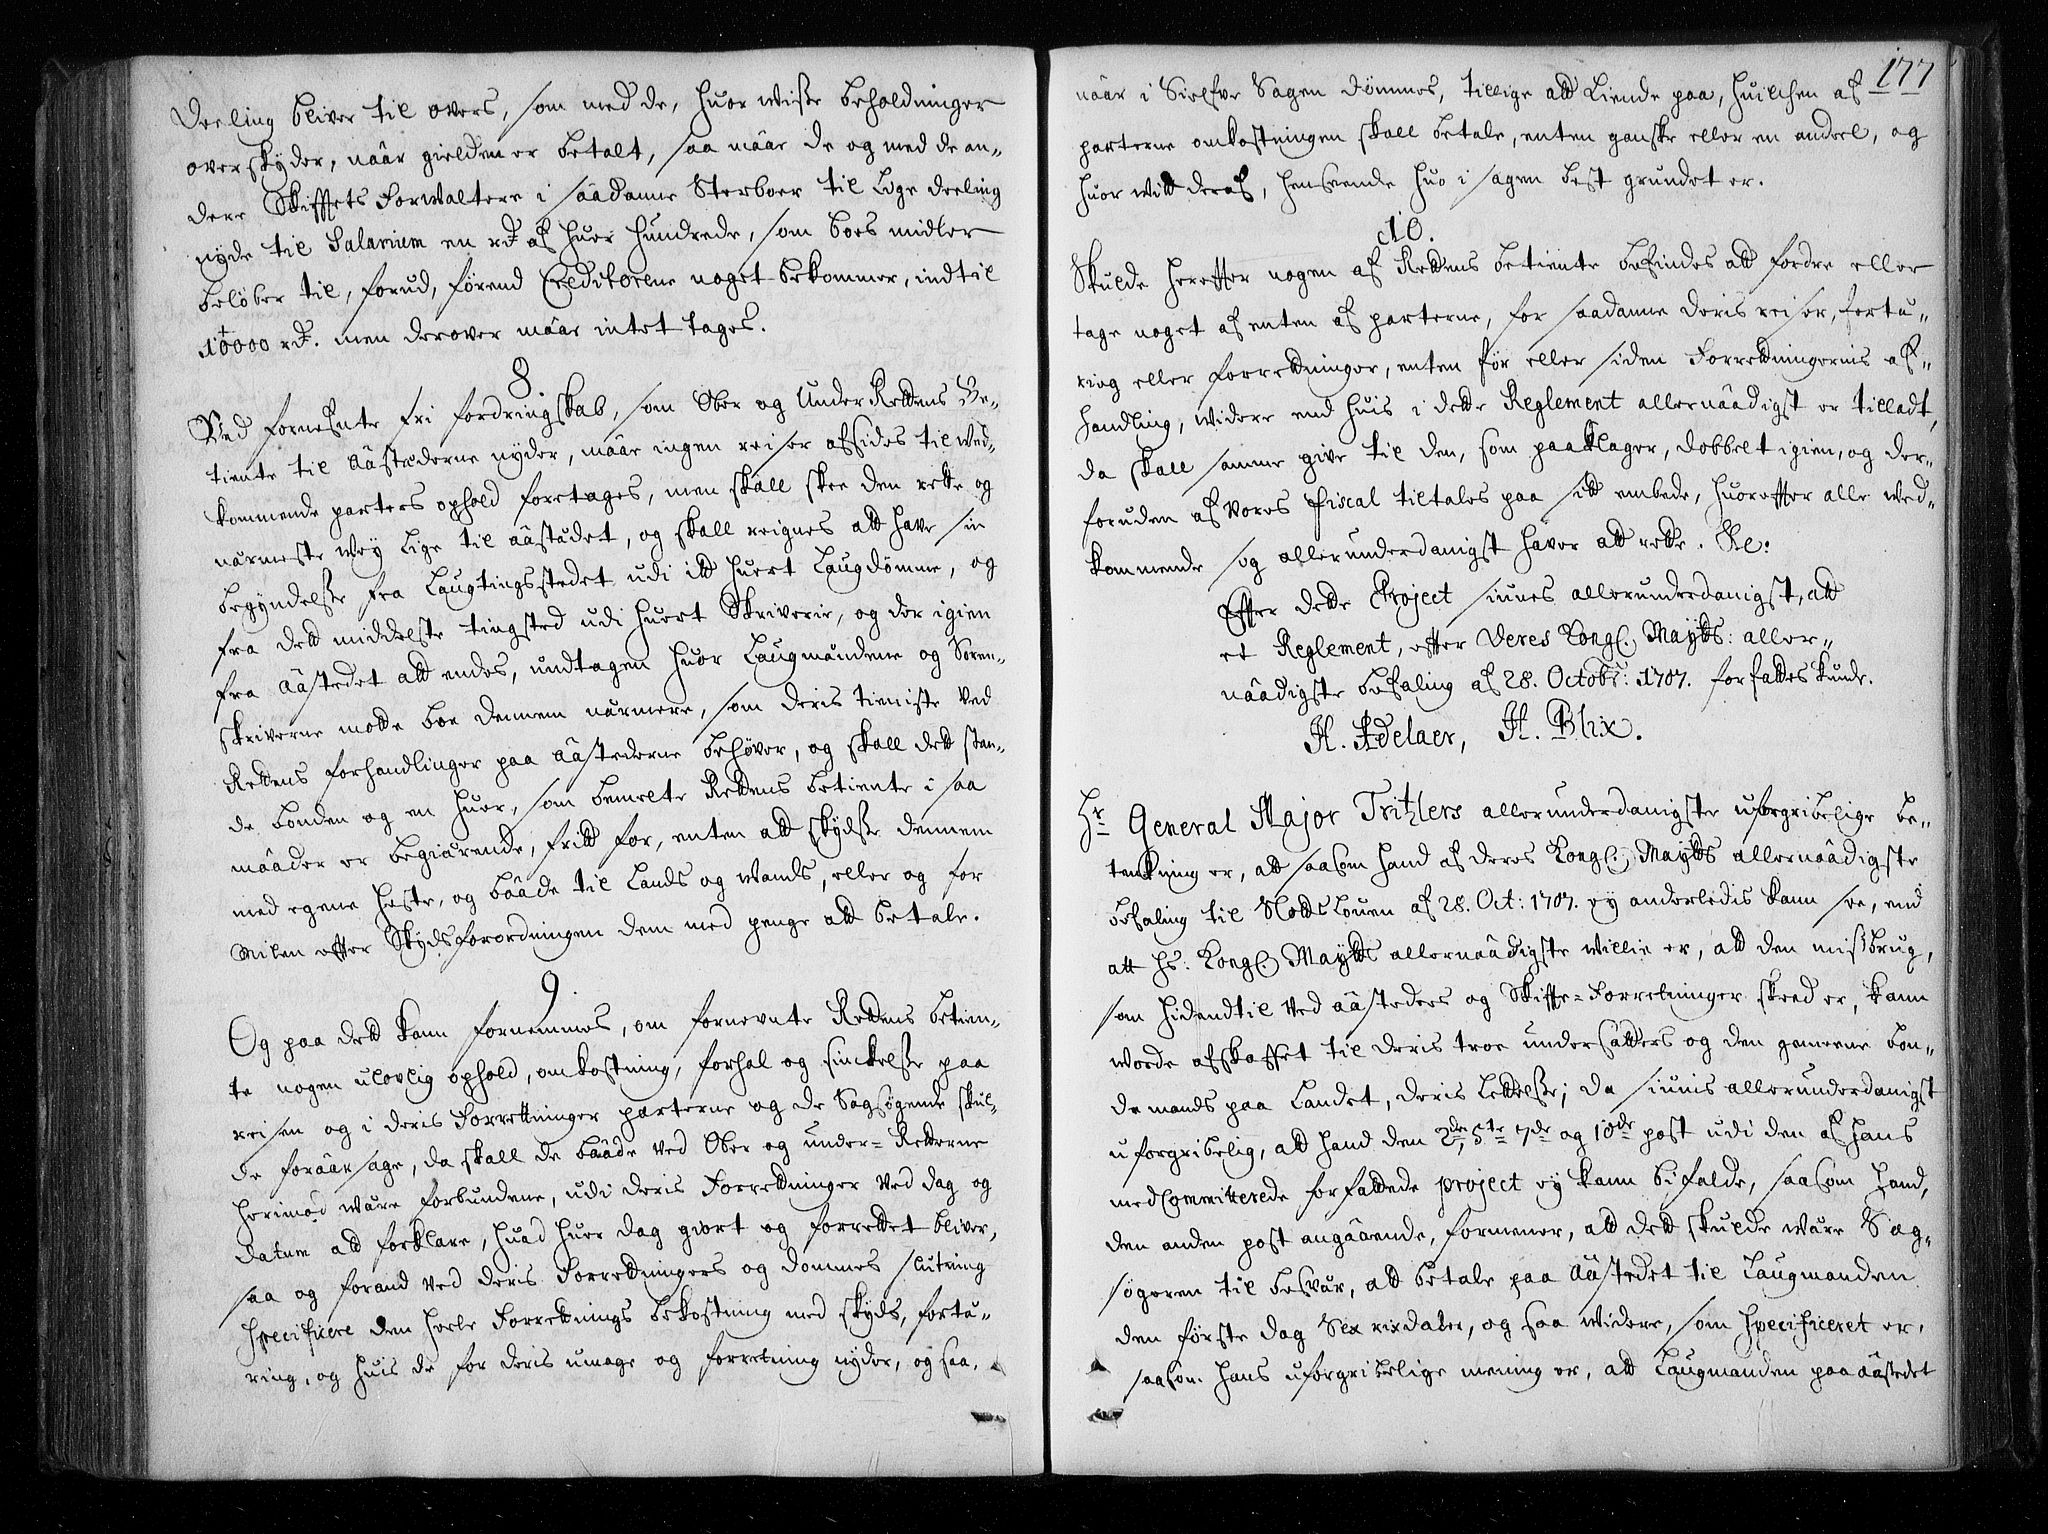 Deeling bliver til overs, som med de, huor wisse beholdninger
overskyder, naar gielden er betalt, saa maar de og med de an-
dere Skifftets Forwaltere i saadanne Sterboer til lige deeling
nyde til Salarium en rdr af huor hundrede, som boes midler
beløber til, forud, førend Creditorerne noget bekommer, indtil
10000 rdr. men derover maar intet tages.
8.
Ved fornefnte fri fordringskab, som Ober og Under Rettens Be-
tiente til Aastæderne nyder, maar ingen reiser afsides til Ved-
kommende parters ophold foretages, men skall skee den rette og
nærmeste wey lige til aastædet, og skall reignes att have sin
begyndelse fra Laugtingsstedet udi itt huert Laugdømme, og
fra dett middelste tingsted udi huert Skriverie, og der igien
fra Aastedet att endes, undtagen huor Laugmændene og Soren-
skriverne motte boe dennem nærmere, som deris tieniste ved
Rettens forhandlinger paa Aastederne behøver, og skall dett stan-
de bonden og en huer, som bemelte Rettens betiente i saa
maader er begiærende, fritt for, enten att skydse dennem
med egene heste, og baade til Lands og Wands, eller og for
Milen effter Skydsforordningen dem med penge att betale.
9.
Og paa dett kann fornemmes, om fornevnte Rettens betien-
te nogen ulovlig ophold, omkostning, forhal og sinckelse paa
reisen og i deris Forrettninger parterne og de Sagsøgende skul-
de foraarsage, da skall de baade ved Ober og under-Retterne
herimod være forbundene, udi deris Forrettninger ved dag og
datum att forklare, huad huer dag giort og forrettet bliver,
saa og forand ved deris Forrettningers og Dommes slutning
specificere den heele Forrettnings bekostning med skyds, fortæ-
ring, og huis de for deris umage og forrettning nyder, og saa,
177
naar i Sielfve Sagen dømmes, tillige att kiende paa, huilchen af
parterne omkostningen skall betale, enten ganske eller en andeel, og
huor witt deraf, henseende huo i sagen best grundet er.
10.
Skulde hereffter nogen af Rettens betiente befindes att fordre eller
tage noget af enten af parterne, for saadanne deris reiser, fortæ-
ring eller forrettninger, enten før eller siden Forrettningernis af-
handling, widere end huis i dette Reglement allernaadigst er tilladt,
da skall samme give til den, som paaklager, dobbelt igien, og der-
foruden af Vores Fiscal tiltales paa sitt embede, huoreffter alle Ved-
kommende sig allerunderdanigst haver att rette. Etc:
Effter dette Project siunes allerunderdanigst, att
et Reglement, effter Deres Kongl. Maytts: aller-
naadigste befaling af 28. Octobr: 1707. forfattes kunde.
H. Adelaer, H. Blix.
Hr General Major Tritzlers allerunderdanigste uforgribelige be-
tenkning er, att saasom hand af Deres Kongl. Maytts allernaadigste
befaling til Slottsloven af 28. Oct: 1707. ey anderledis kann see, end
att Hs: Kongl. Maytts allernaadigste willie er, att den missbrug,
som hidendtil ved aasteders og Skiffte-Forretninger skeed er, kann
worde afskaffet til deris troe undersatters og den gemeene bon-
de mands paa Landet, deris Lettelse; da siunis allerunderdanigst
uforgribelig, att hand den 2de, 5te, 7de og 10de post udi den af hans
med Committerede forfattede project ey kann bifalde, saasom hand,
den anden post angaaende, formener, att dett skulde være Sag-
søgeren til besvær, att betale paa Aastedet til Laugmanden
den første dag Sex rixdaler, og saa widere, som specificeret er,
saasom hans uforgribelige mening er, att Laugmanden paa aastedet